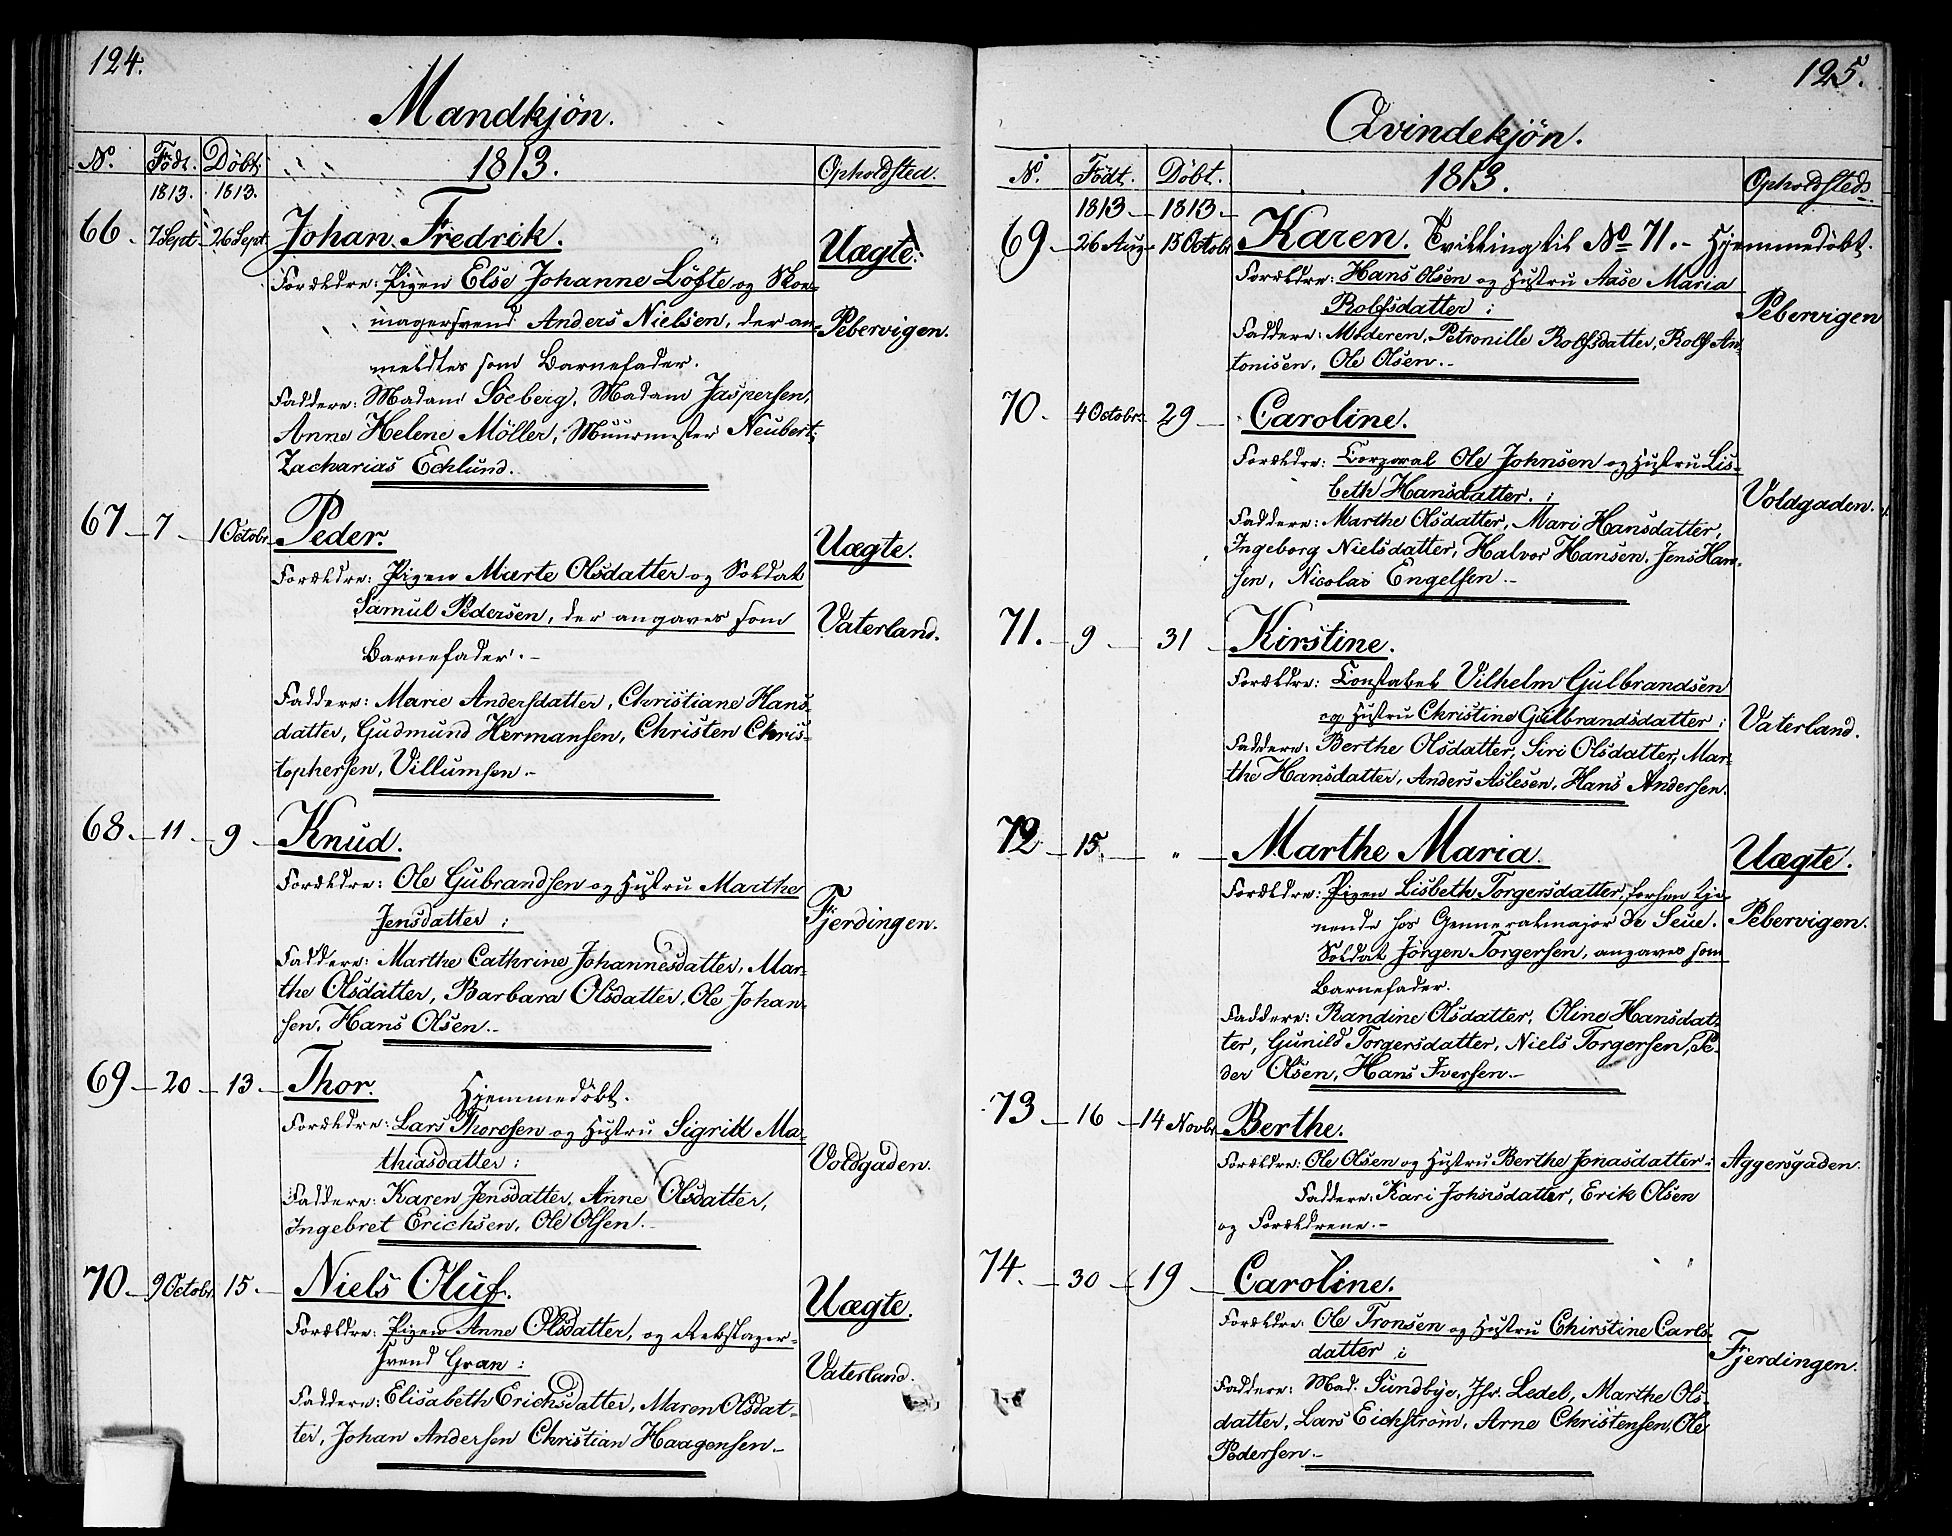 124.
Mandkjön.
No. Födt. Döbt. 1813. Opholdsted.
1813. 1813.
66. 7 Sept. 26 Sept. Johan Fredrik. Uægte.
Forældre: Pigen Else Johanne Löfte og Skoe-
magersvend Anders Nielsen, der an- Pebervigen.
meldtes som Barnefader.
Faddere: Madam Söeberg, Madam Jaspersen,
Anne Helene Möller, Muurmester Neubert,
Zacharias Echlund.
67 7 1 Octobr. Peder. Uægte.
Forældre: Pigen Marte Olsdatter og Soldat
Samul Pedersen, der angaves som Vaterland.
Barnefader.
Faddere: Marie Andersdatter, Christiane Hans-
datter, Gudmund Hermansen, Christen Chris-
tophersen, Villumsen.
68. 11 9 Knud.
Forældre: Ole Gubrandsen og Hustru Marthe
Jensdatter: Fjerdingen.
Faddere: Marthe Cathrine Johannesdatter, Mar-
the Olsdatter, Barbara Olsdatter, Ole Johan-
sen, Hans Olsen.
69 20 13 Thor. Hjemmedöbt.
Forældre: Lars Thoresen og Hustru Sigritt Ma-
thiasdatter: Voldgaden.
Faddere: Karen Jensdatter, Anne Olsdatter,
Ingebret Erichsen, Ole Olsen.
70. 9 Octobr. 15. Niels Oluf. Uægte.
Forældre: Pigen Anne Olsdatter, og Rebslager-
svend Gran: Vaterland.
Faddere: Elisabeth Erichsdatter, Maren Olsdat-
ter, Johan Andersen Christian Haagensen.
125.
Qvindekjön.
No. Födt. Döbt. 1813. Opholdsted.
1813 1813
69 26 Aug. 15 Octobr. Karen. Tvilling til No 71. Hjemmedöbt.
Forældre: Hans Olsen og Hustru Aase Maria
Rolfsdatter: Pebervigen
Faddere: Moderen, Petronille Rolfsdatter, Rolf An-
tonisen, Ole Olsen.
70. 4 Octobr. 29 Caroline.
Forældre: Corporal Ole Johnsen og Hustru Lis-
beth Hansdatter: Voldgaden.
Faddere: Marthe Olsdatter, Mari Hansdatter,
Ingeborg Nielsdatter, Halvor Hansen, Jens Han-
sen, Nicolai Engelsen.
71. 9 31 Kirstine.
Forældre: Constabel Vilhelm Gulbrandsen
og Hustru Christine Gulbrandsdatter: Vaterland.
Faddere: Berthe Olsdatter, Siri Olsdatter, Mar-
the Hansdatter, Anders Aslesen, Hans Andersen.
72 15. " Marthe Maria. Uægte.
Forældre: Pigen Lisbeth Torgersdatter, forhen tje-
nende hos Genneralmajor de Seue. Pebervigen.
Soldat Jörgen Torgersen, angaves som
Barnefader.
Faddere: Randine Olsdatter, Oline Hansdat-
ter, Gunild Torgersdatter, Niels Torgersen, Pe-
der Olsen, Hans Iversen.
73 16 14 Novbr. Berthe.
Forældre: Ole Olsen og Hustru Berthe Jonasdatter: Aggersgaden.
Faddere: Kari Johnsdatter, Erik Olsen
og Forældrene.
74. 30 19 Caroline.
Forældre: Ole Tronsen og Hustru Chirstine Carls-
datter: Fjerdingen.
Faddere: Mad. Sundbye, Jfr. Ledel, Marthe Ols-
datter, Lars Eichström, Arne Christensen, Ole
Pedersen.